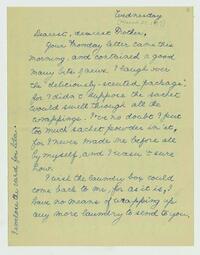 Wednesday
Dearest, dearest Mother,
Your Monday letter came this
morning and contained a good
many bits of news. I laugh over
the "deliciously-scented package",
for I didn't suppose the sachet
would smell through all the
wrappings. I've no doubt I put
too much sachet powder in it,
for I never made one before all
by myself, and I wasn't sure
how.
I wish the laundry boy could
come back to me, for as it is, I
have no means of wrapping up
any more laundry to send to you,
I enclose the card for